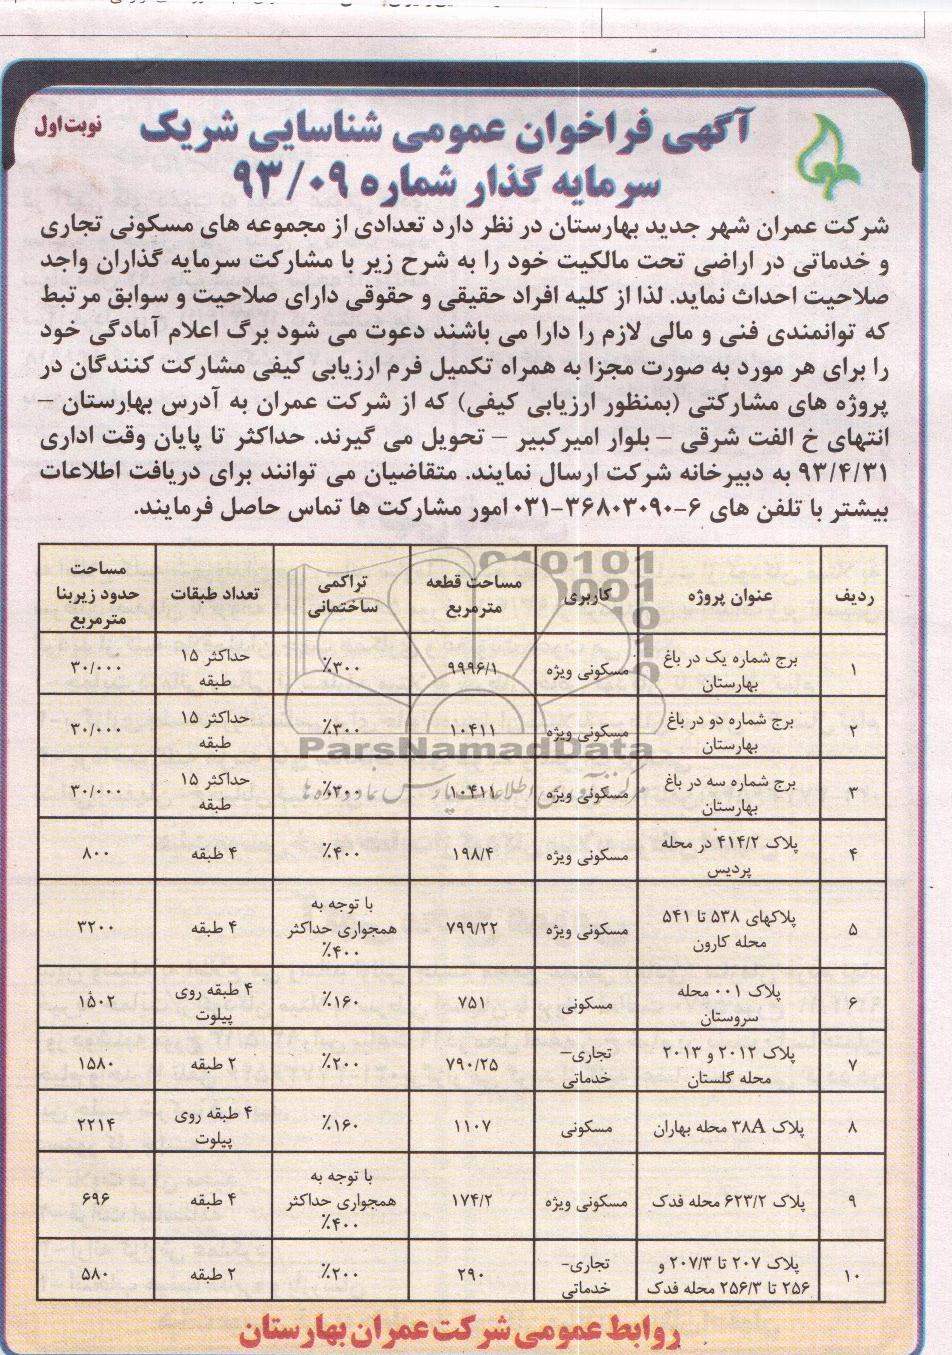 آگهی فراخوان عمومی شناسایی شریک
نوبت اول
سرمایه گذار شماره ۹۳/۰۹
شرکت عمران شهر جدید بهارستان در نظر دارد تعدادی از مجموعه های مسکونی تجاری
و خدماتی در اراضی تحت مالکیت خود را به شرح زیر با مشارکت سرمایه گذاران واجد
صلاحیت احداث نماید. لذا از کلیه افراد حقیقی و حقوقی دارای صلاحیت و سوابق مرتبط
که توانمندی فنی و مالی لازم را دارا می باشند دعوت می شود برگ اعلام آمادگی خود
را برای هر مورد به صورت مجزا به همراه تکمیل فرم ارزیابی کیفی مشارکت کنندگان در
پروژه های مشارکتی (بمنظور ارزیابی کیفی) که از شرکت عمران به آدرس بهارستان –
انتهای خ الفت شرقی – بلوار امیرکبیر – تحویل می گیرند. حداکثر تا پایان وقت اداری
۹۳/۴/۳۱ به دبیرخانه شرکت ارسال نمایند. متقاضیان می توانند برای دریافت اطلاعات
بیشتر با تلفن های ۶-۳۶۸۰۳۰۹۰-۰۳۱ امور مشارکت ها تماس حاصل فرمایند.
ردیف عنوان پروژه کاربری مساحت قطعه مترمربع تراکمی ساختمانی تعداد طبقات مساحت حدود زیربنا مترمربع
۱ برج شماره یک در باغ بهارستان مسکونی ویژه ۹۹۹۶/۱ ۳۰۰٪ حداکثر ۱۵ طبقه ۳۰/۰۰۰
۲ برج شماره دو در باغ بهارستان مسکونی ویژه ۱۰۴۱۱ ۳۰۰٪ حداکثر ۱۵ طبقه ۳۰/۰۰۰
۳ برج شماره سه در باغ بهارستان مسکونی ویژه ۱۰۴۱۱ ۳۰۰٪ حداکثر ۱۵ طبقه ۳۰/۰۰۰
۴ پلاک ۴۱۴/۲ در محله پردیس مسکونی ویژه ۱۹۸/۴ ۴۰۰٪ ۴ طبقه ۸۰۰
۵ پلاکهای ۵۳۸ تا ۵۴۱ محله کارون مسکونی ویژه ۷۹۹/۲۲ با توجه به همجواری حداکثر ۴۰۰٪ ۴ طبقه ۳۲۰۰
۶ پلاک ۰۰۱ محله سروستان مسکونی ۷۵۱ ۱۶۰٪ ۴ طبقه روی پیلوت ۱۵۰۲
۷ پلاک ۲۰۱۲ و ۲۰۱۳ محله گلستان تجاری– خدماتی ۷۹۰/۲۵ ۲۰۰٪ ۲ طبقه ۱۵۸۰
۸ پلاک ۳۸A محله بهاران مسکونی ۱۱۰۷ ۱۶۰٪ ۴ طبقه روی پیلوت ۲۲۱۴
۹ پلاک ۶۲۳/۲ محله فدک مسکونی ویژه ۱۷۴/۲ با توجه به همجواری حداکثر ۴۰۰٪ ۴ طبقه ۶۹۶
۱۰ پلاک ۲۰۷ تا ۲۰۷/۳ و ۲۵۶ تا ۲۵۶/۳ محله فدک تجاری- خدماتی ۲۹۰ ۲۰۰٪ ۲ طبقه ۵۸۰
ParsNamadData
روابط عمومی شرکت عمران بهارستان